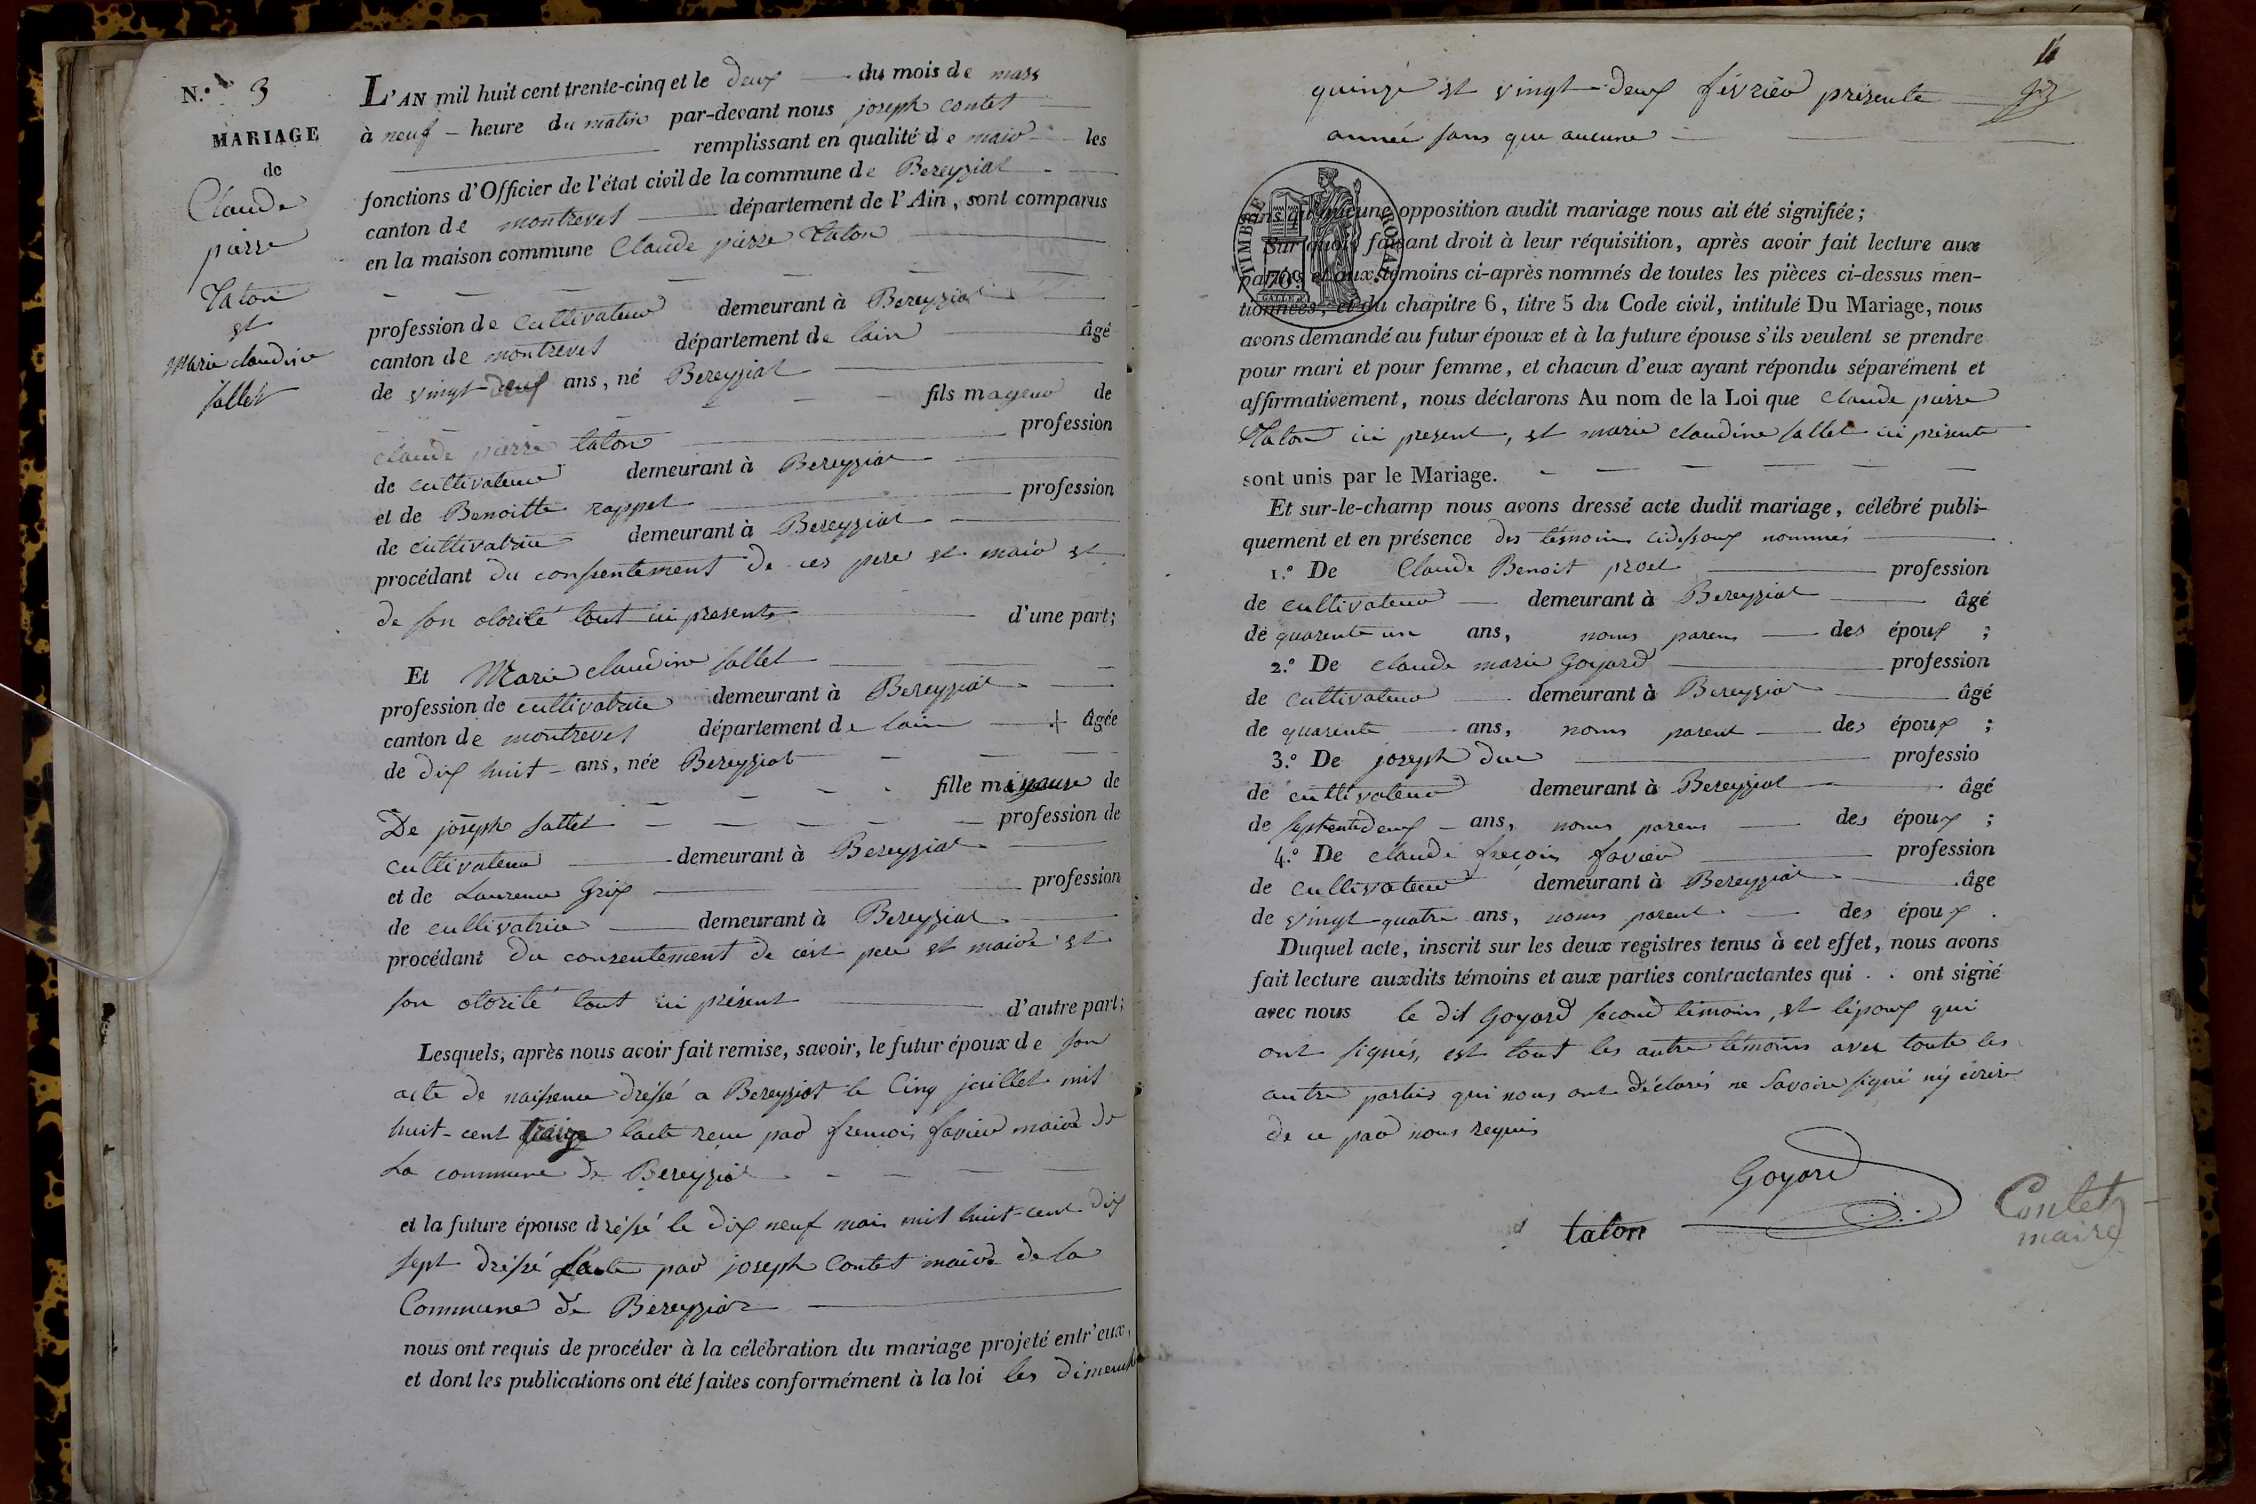 N.° 3
MARIAGE
de
Claude
pierre
Taton
et
Marie claudine
sallet
L'AN mil huit cent trente-cinq et le deux du mois de mars
à neuf heure du matin par-devant nous joseph contet
remplissant en qualité de maire les
fonctions d'Officier de l'état civil de la commune de Bereyziat
canton de montrevel département de l'Ain, sont comparus
en la maison commune Claude pierre Taton
profession de Cultivateur demeurant à Bereyziat
canton de montrevel département de lain âgé
de vingt deux ans, né Bereyziat
fils mageur de
claude pierre taton profession
de cultivateur demeurant à Bereyziat
et de Benoitte rappet profession
de cultivatrice demeurant à Bereyziat
procédant du consentement de ces pere et maire et
de son otorité tout ici presents d'une part;
Et Marie claudine sallet
profession de cultivatrice demeurant à Bereyziat
canton de montrevel département de lain + âgée
de dix huit ans, née Bereyziat
fille mineure de
De joseph sallet profession de
cultivateur demeurant à Bereyziat
et de Laurence Grix profession
de cultivatrice demeurant à Bereyziat
procédant du consentement de cest pere et maire et
son otorité tout ici présent d'autre part;
Lesquels, après nous avoir fait remise, savoir, le futur époux de son
acte de naissence dressé a Bereyziat le Cinq juillet mil
huit-cent treize lacte recu par fremcois favier maire de
La commune de Bereyziat
et la future épouse dréssé le dix neuf mai mil huit-cent dix
sept dréssé lacte par joseph Contet maire de la
Commune de Bereyziat
nous ont requis de procéder à la célébration du mariage projeté entr'eux,
et dont les publications ont été faites conformément à la loi les dimenche
11
quinze et vingt-deux février présente
année sans que aucune
TIMBRE ROYAL
sans qu'aucune opposition audit mariage nous ait été signifiée;
Sur quoi, faisant droit à leur réquisition, après avoir fait lecture aux
parties et aux témoins ci-après nommés de toutes les pièces ci-dessus men-
tionnées, et du chapitre 6, titre 5 du Code civil, intitulé Du Mariage, nous
avons demandé au futur époux et à la future épouse s'ils veulent se prendre
pour mari et pour femme, et chacun d'eux ayant répondu séparément et
affirmativement, nous déclarons Au nom de la Loi que Claude pierre
Taton ici present, et marie claudine sallet ici présente
sont unis par le Mariage.
Et sur-le-champ nous avons dressé acte dudit mariage, célébré publi-
quement et en présence des témoins cidessoux nommés
1.° De Claude Benoit proet profession
de cultivateur demeurant à Bereyziat âgé
de quarente un ans, noms parens des époux ;
2.° De claude marie Goyard profession
de cultivateur demeurant à Bereyziat âgé
de quarente ans, noms parent des époux ;
3.° De joseph duc professio
de cultivateur demeurant à Bereyziat âgé
de septentedeux ans, noms parens des époux ;
4.° De claude frecois favier profession
de cultivateur demeurant à Bereyziat âge
de vingt-quatre ans, noms parent des époux .
Duquel acte, inscrit sur les deux registres tenus à cet effet, nous avons
fait lecture auxdits témoins et aux parties contractantes qui . . ont signé
avec nous le dit Goyard second témoins, et lépoux qui
ont signés, est tout les autre témoins avec toute les
autre parties qui nous ont déclarés ne savoire signé ny écrire
de ce par nous requis
Goyard
taton
Contet
maire